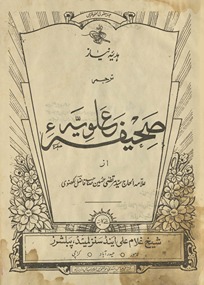 ہدیۂ نیاز
ترجمہ
صحیفۂ علویہ
از
علامہ الحاج سید مرتضیٰ حسین صاحب فاضل لکھنوی
شیخ غلام علی اینڈ سنز لمیٹڈ، پبلشرز
لاہور حیدرآباد کراچی